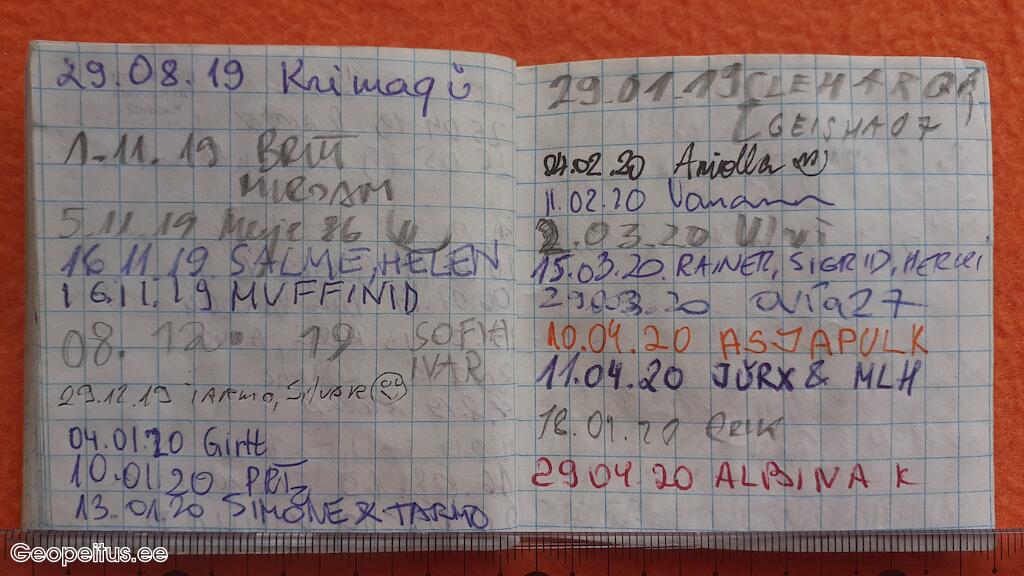 29.08.19 Krimagü
1.11.19 BRITT
MIRJAM
5.11.19
16.11.19 SALME, HELEN
16.11.19 MUFFINID
08.12.19 SOFIA
IVAR
29.12.19 TARMO, SILVAR
04.01.20 Girtt
10.01.20
13.01.20 SIMONE & TARMO
29.01.19
GEISHA07
04.02.20 Aniolla
11.02.20 Vamann
2.03.20 Ulvi
15.03.20. RAINER, SIGRID, HERKI
29.03.20
10.04.20 ASJAPULK
11.04.20 JÜRX & MLH
18.04.20
29.04.20 ALBINA K
Geopeitus.ee